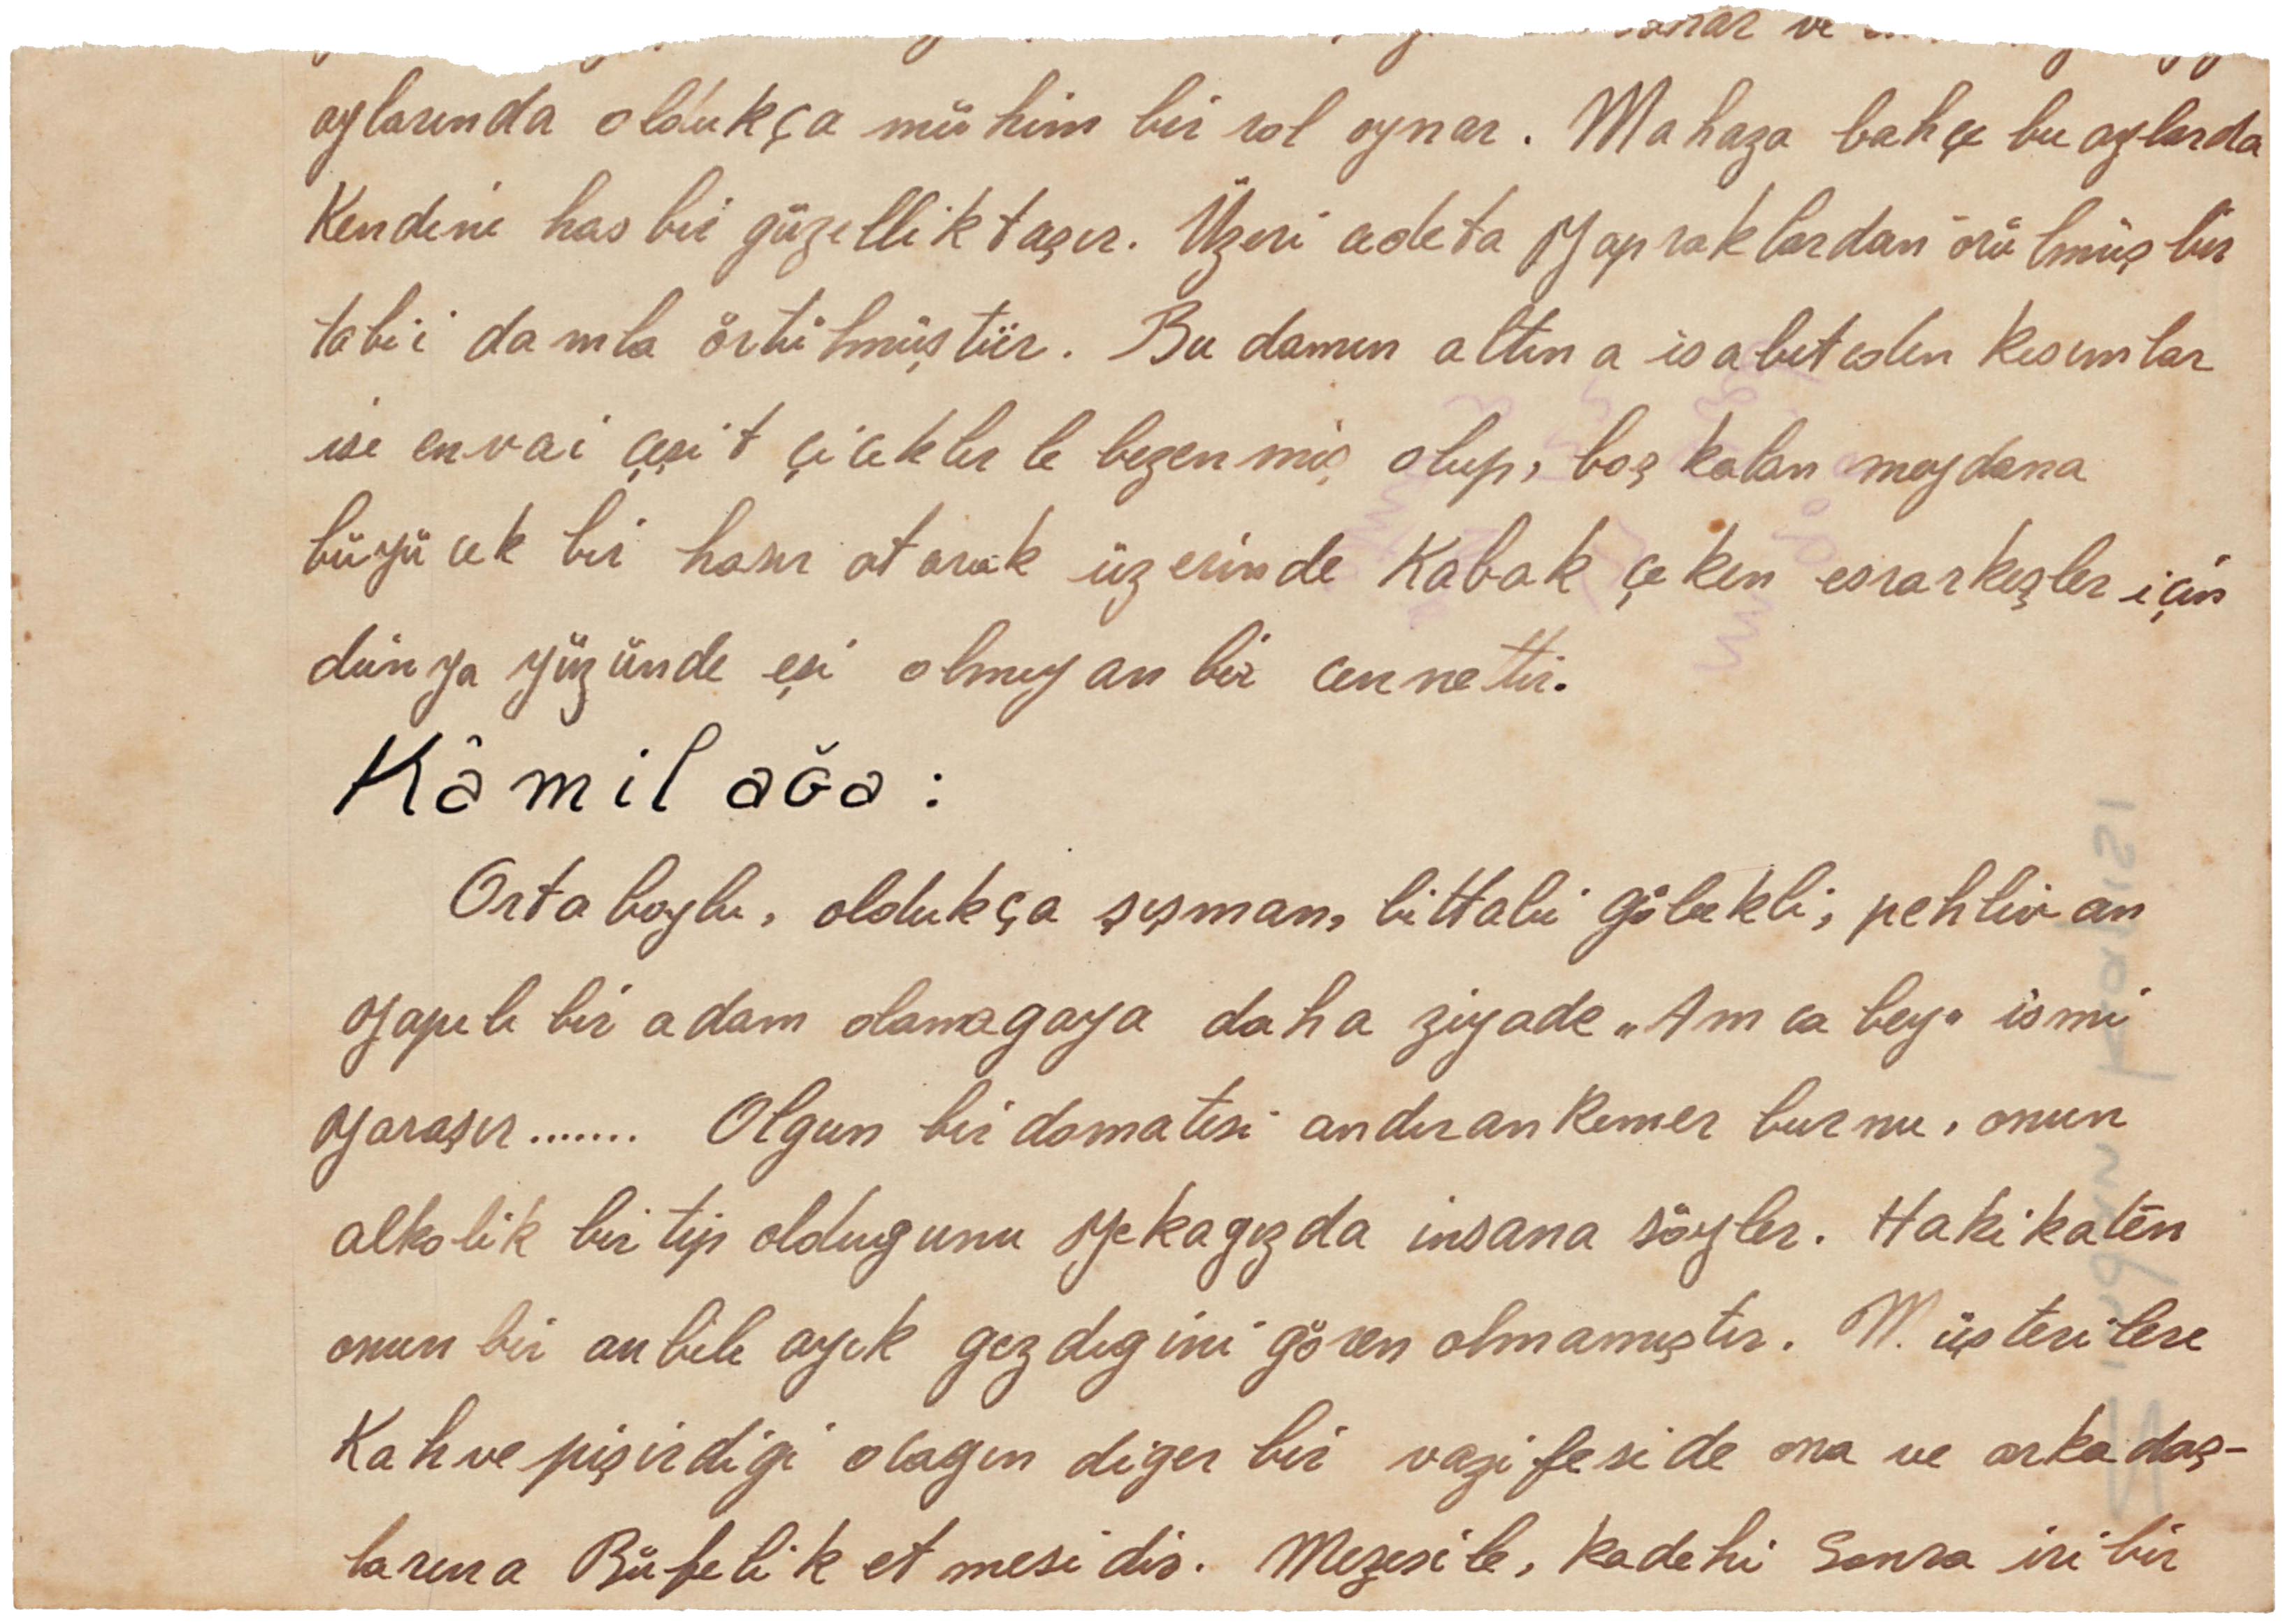 aylarında oldukça mühim bir rol oynar. Mahaza bahçe bu aylarda
Kendine has bir güzellik taşır. Üzeri adeta yapraklardan örülmüş bir
tabii damla örtülmüştür. Bu damın altına isabet eden kısımlar
ise envai çeşit çiceklerle bezenmiş olup, boş kalan meydana
büyücek bir hasır atarak üzerinde Kabak çeken esrarkeşler için
dünya yüzünde eşi olmıyan bir cennettir.
Kâmil ağa:
Orta boylu, oldukça şışman, bittabi göbekli, pehlivan
yapılı bir adam olan agaya daha ziyade "Amca bey" ismi
yaraşır....... Olgun bir domatesi andıran Kemer burnu, onun
alkolik bir tip oldugunu ilk agızda insana söyler. Hakikatên
onun bir an bile ayık gezdıgini gören olmamıştır. Müşterilere
Kahve pişirdigi ocagın diger bir vazifeside ona ve arkadaş-
larına Büfelik etmesidir. Mezesile, kadehi Sonra iri bir